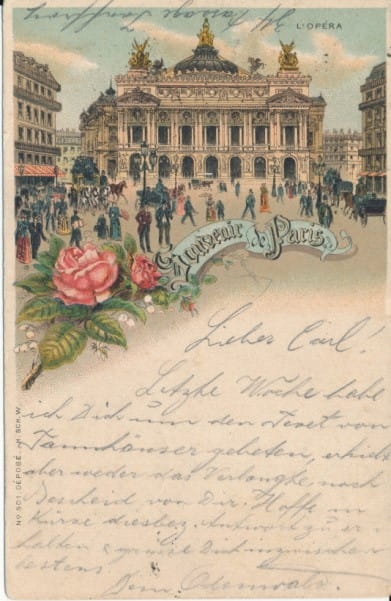 L'OPÉRA
Souvenir de Paris
Lieber Carl!
Letzte Woche habe
ich Dich um den Text von
Tannhäuser gebeten, erhielt
aber weder das Verlangte, noch
Bescheid von Dir. Hoffe in
Kürze diesbez. Antwort zu er-
halten & grüsse Dich inzwischen
bestens.
Dein
No 501. DÉPOSÉ.-H.SCH.W.